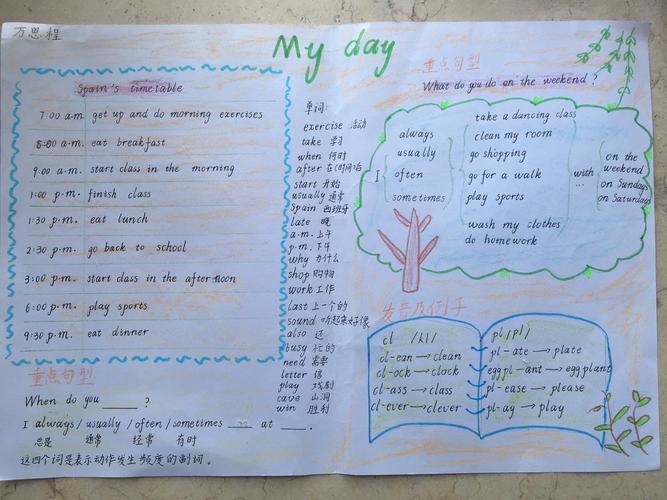 万思程
My day
Spain's timetable
7:00 a.m. get up and do morning exercises
8:00 a.m. eat breakfast
9:00 a.m. start class in the morning
1:00 p.m. finish class
1:30 p.m. eat lunch
2:30 p.m. go back to school
3:00 p.m. start class in the afternoon
6:00 p.m. play sports
9:30 p.m. eat dinner
重点句型
When do you ____ ?
I always / usually / often / sometimes ___ at ___ .
总是 通常 经常 有时
这四个词是表示动作发生频度的副词.
单词:
exercise 活动
take 学习
when 何时
after 在(时间)后
start 开始
usually 通常
Spain 西班牙
late 晚
a.m. 上午
p.m. 下午
why 为什么
shop 购物
work 工作
last 上一个的
sound 听起来好像
also 还
busy 忙的
need 需要
letter 信
play 戏剧
cave 山洞
win 胜利
重点句型
What do you do on the weekend ?
take a dancing class
always
clean my room
usually
go shopping
I often
go for a walk
sometimes
play sports
wash my clothes
do homework
with
...
on the
weekend
on Sundays
on Saturdays
发音及例子
cl /kl/
cl-ean→clean
cl-ock→clock
cl-ass→class
cl-ever→clever
pl /pl/
pl-ate→plate
eggpl-ant→eggplant
pl-ease→please
pl-ay→play